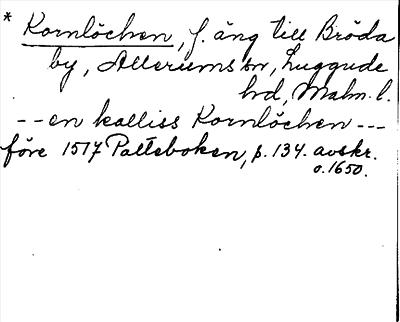 * Kornlöchen, f. äng till Bröda
by, Allerums sn, Luggude
hd, Malm. l.
-- en kalliss Kornlöchen ---
före 1517 Palteboken, p. 134. avskr.
o. 1650.